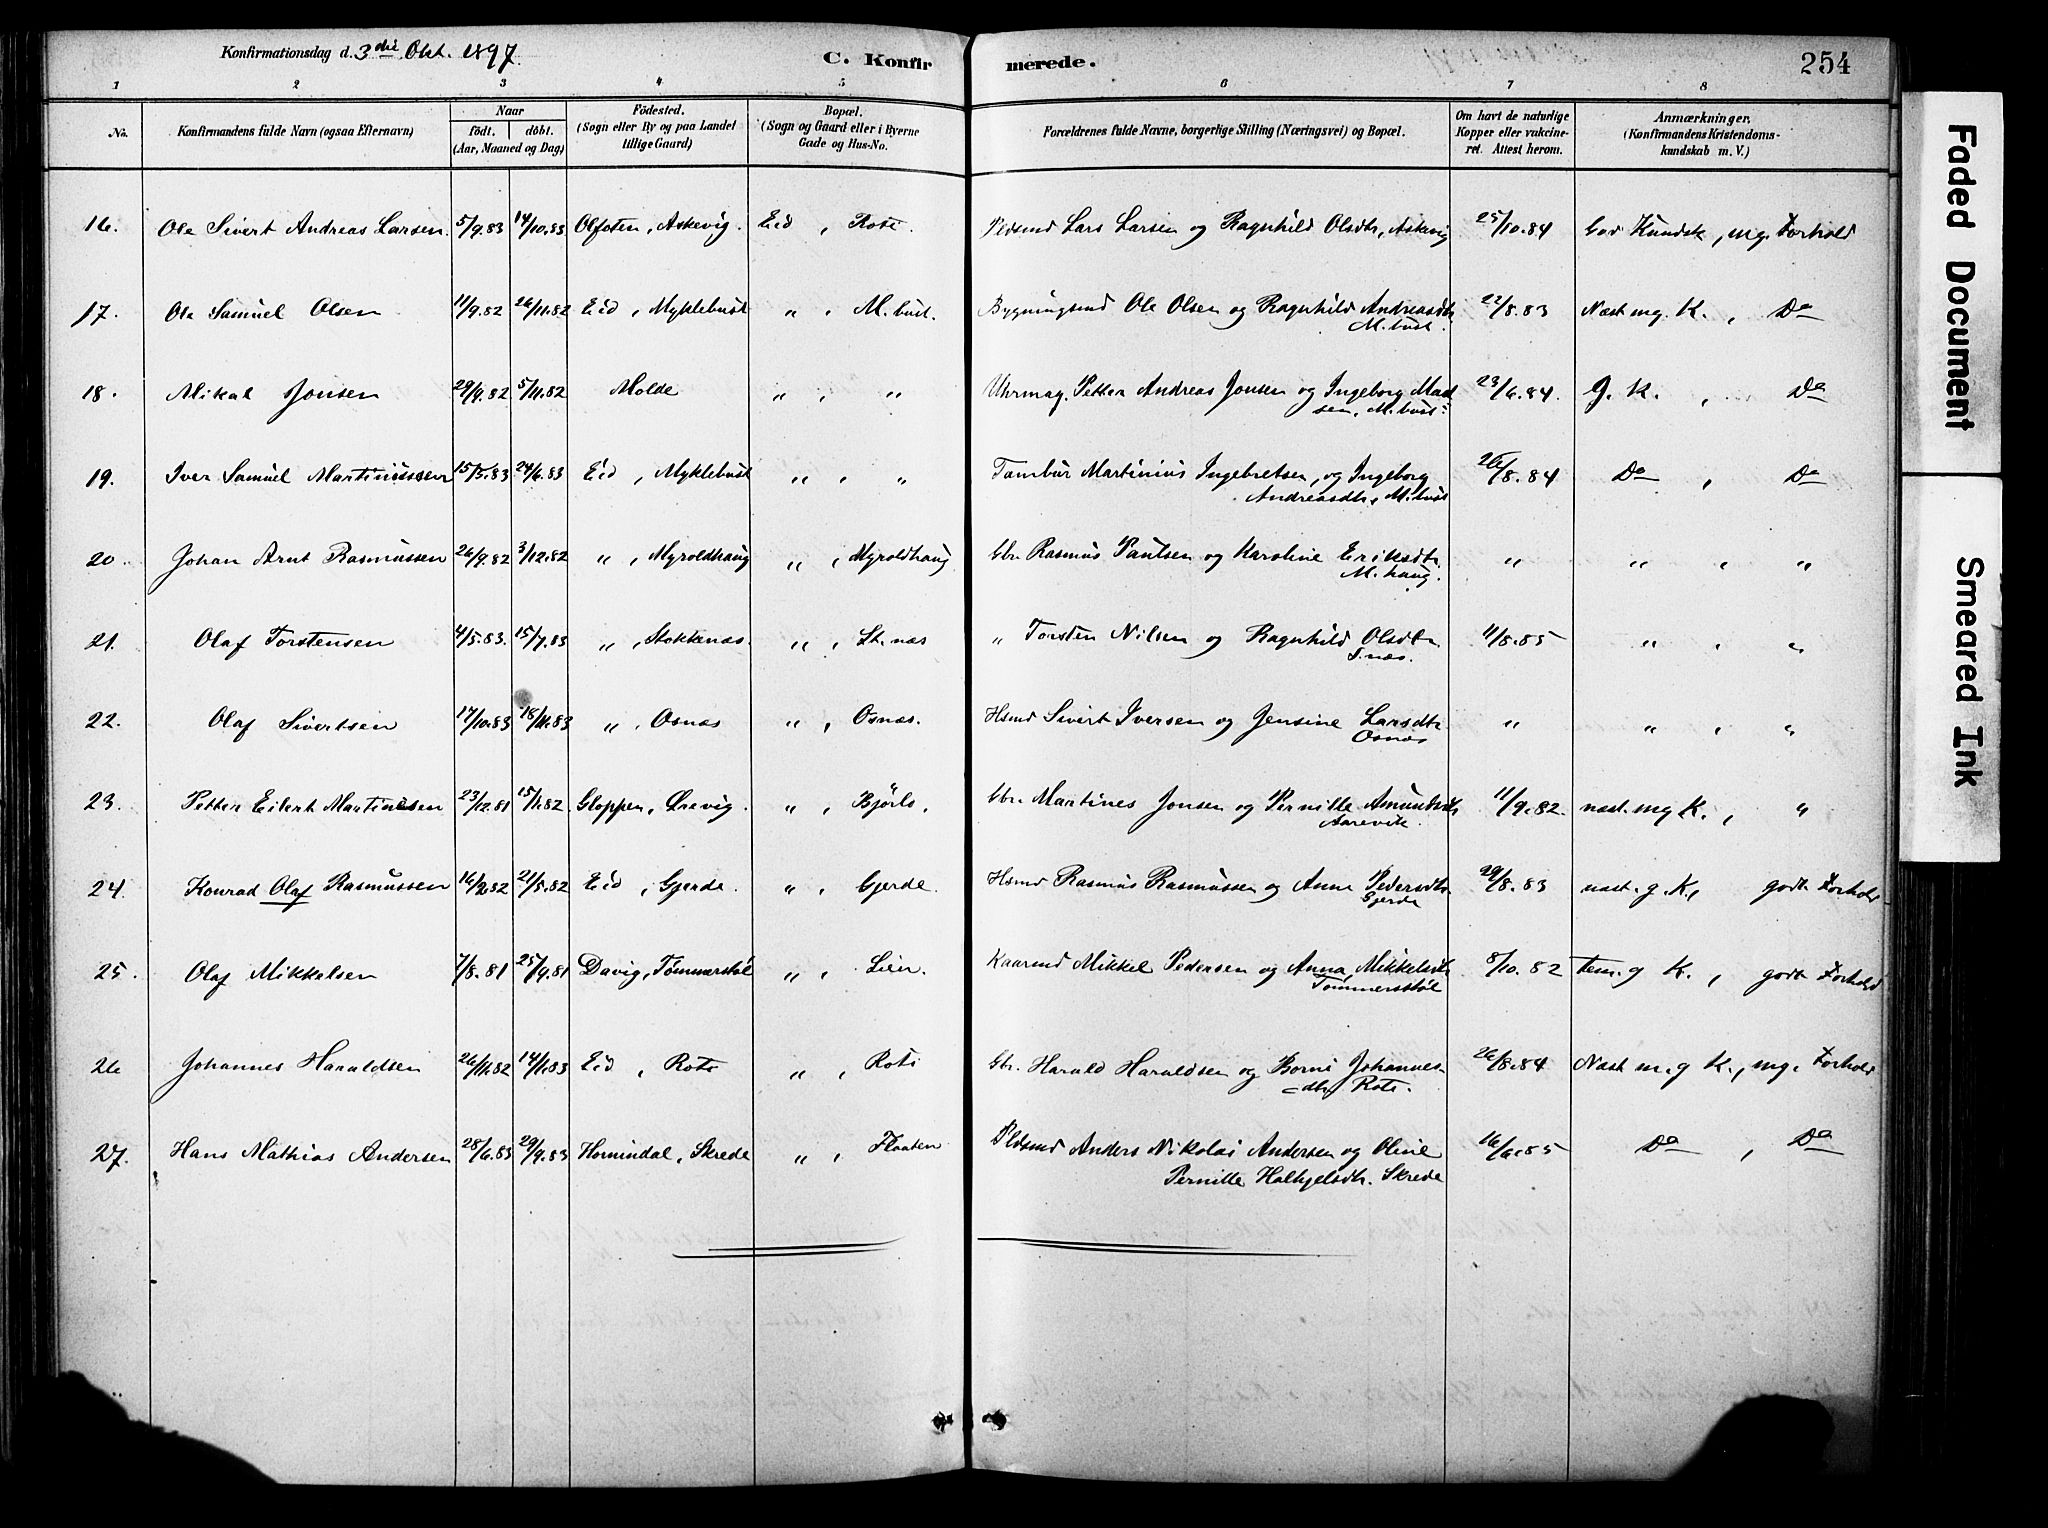 Konfirmationsdag d. 3die Okt. 1897.
C. Konfirmerede.
254
1 2 3 4 5 6 7 8
No.
Konfirmandens fulde Navn (ogsaa Efternavn)
Naar
födt. döbt.
(Aar, Maaned og Dag)
Födested.
(Sogn eller By og paa Landet
tillige Gaard)
Bopæl.
(Sogn og Gaard eller i Byerne
Gade og Hus-No.
Forældrenes fulde Navne, borgerlige Stilling (Næringsvei) og Bopæl.
Om havt de naturlige
Kopper eller vakcine-
ret. Attest herom.
Anmærkninger.
(Konfirmandens Kristendoms-
kundskab m. V.)
16. Ole Sivert Andreas Larsen. 5/9.83 14/10.83 Olfoten, Askevig. Eid, Rote. Pldsmd Lars Larsen og Ragnhild Olsdtr, Askevig 25/10.84 God Kundsk, mg. Forhold
17. Ole Samuel Olsen 11/9.82 26/11.82 Eid, Myklebust „ , M.bust. Bygningsmd Ole Olsen og Ragnhild Andreasdtr
M.bust. 22/8.83 Næst mg. K. , Do
18. Mikal Jonsen 29/9.82 5/11.82 Molde „ , „ Uhrmag. Petter Andreas Jonsen og Ingeborg Mad
sen, M.bust. 23/6.84. G. K. , Do
19. Iver Samuel Martinussen 15/5.83 24/6.83 Eid, Myklebust „ , „ Tambur Martinius Ingebretsen, og Ingeborg
Andreasdtr, M.bust 26/8.84 Do , Do
20. Johan Arnt Rasmussen 26/9.82 3/12.82 „ , Myroldhaug „ , Myroldhaug Gbr. Rasmus Paulsen og Karoline Eriksdtr
M.haug. „ „ , „
21. Olaf Torstensen 4/5.83. 15/7.83 „ , Stokkenæs. „ , St.næs „ Torsten Nilsen og Ragnhild Olsdtr
S.næs. 11/8.85 „ , „
22. Olaf Sivertsen 17/10.83 18/11.83 „ , Osnæs „ , Osnæs. Hsmd Sivert Iversen og Jensine Larsdtr
Osnæs „ „ , „
23. Petter Eilert Martinesen 23/12.81 15/1.82. Gloppen, Ørevig. „ , Bjørlo, Gbr. Martines Jonsen og Pernille Amundsdtr
Aarevik. 11/9.82. næst. mg K. , „
24. Konrad Olaf Rasmussen 16/2.82 21/5.82 Eid, Gjerde. „ , Gjerde. Hsmd Rasmus Rasmussen og Anne Pedersdtr
Gjerde 29/8.83 næst. g K, godt Forhold
25. Olaf Mikkelsen 7/8.81 25/9.81 Davig, Tømmerstøl „ , Lien. Kaarmd Mikkel Pedersen og Anna Mikkelsdtr
Tømmerstøl 8/10.82 tem. g K. , godt Forhold
26 Johannes Haraldsen 26/11.82 14/1.83 Eid, Rote „ , Rote Gbr. Harald Haraldsen og Borni Johannes-
dtr Rote. 26/8.84 Næst m. g K., mg. Forhold
27. Hans Mathias Andersen 28/6.83 29/9.83 Hornindal, Skrede „ , Flaaten Pldsmd Anders Nikolai Andersen og Oline
Pernille Halkjelsdtr. Skrede 16/6.85 Do , Do
Faded Document
Smeared Ink